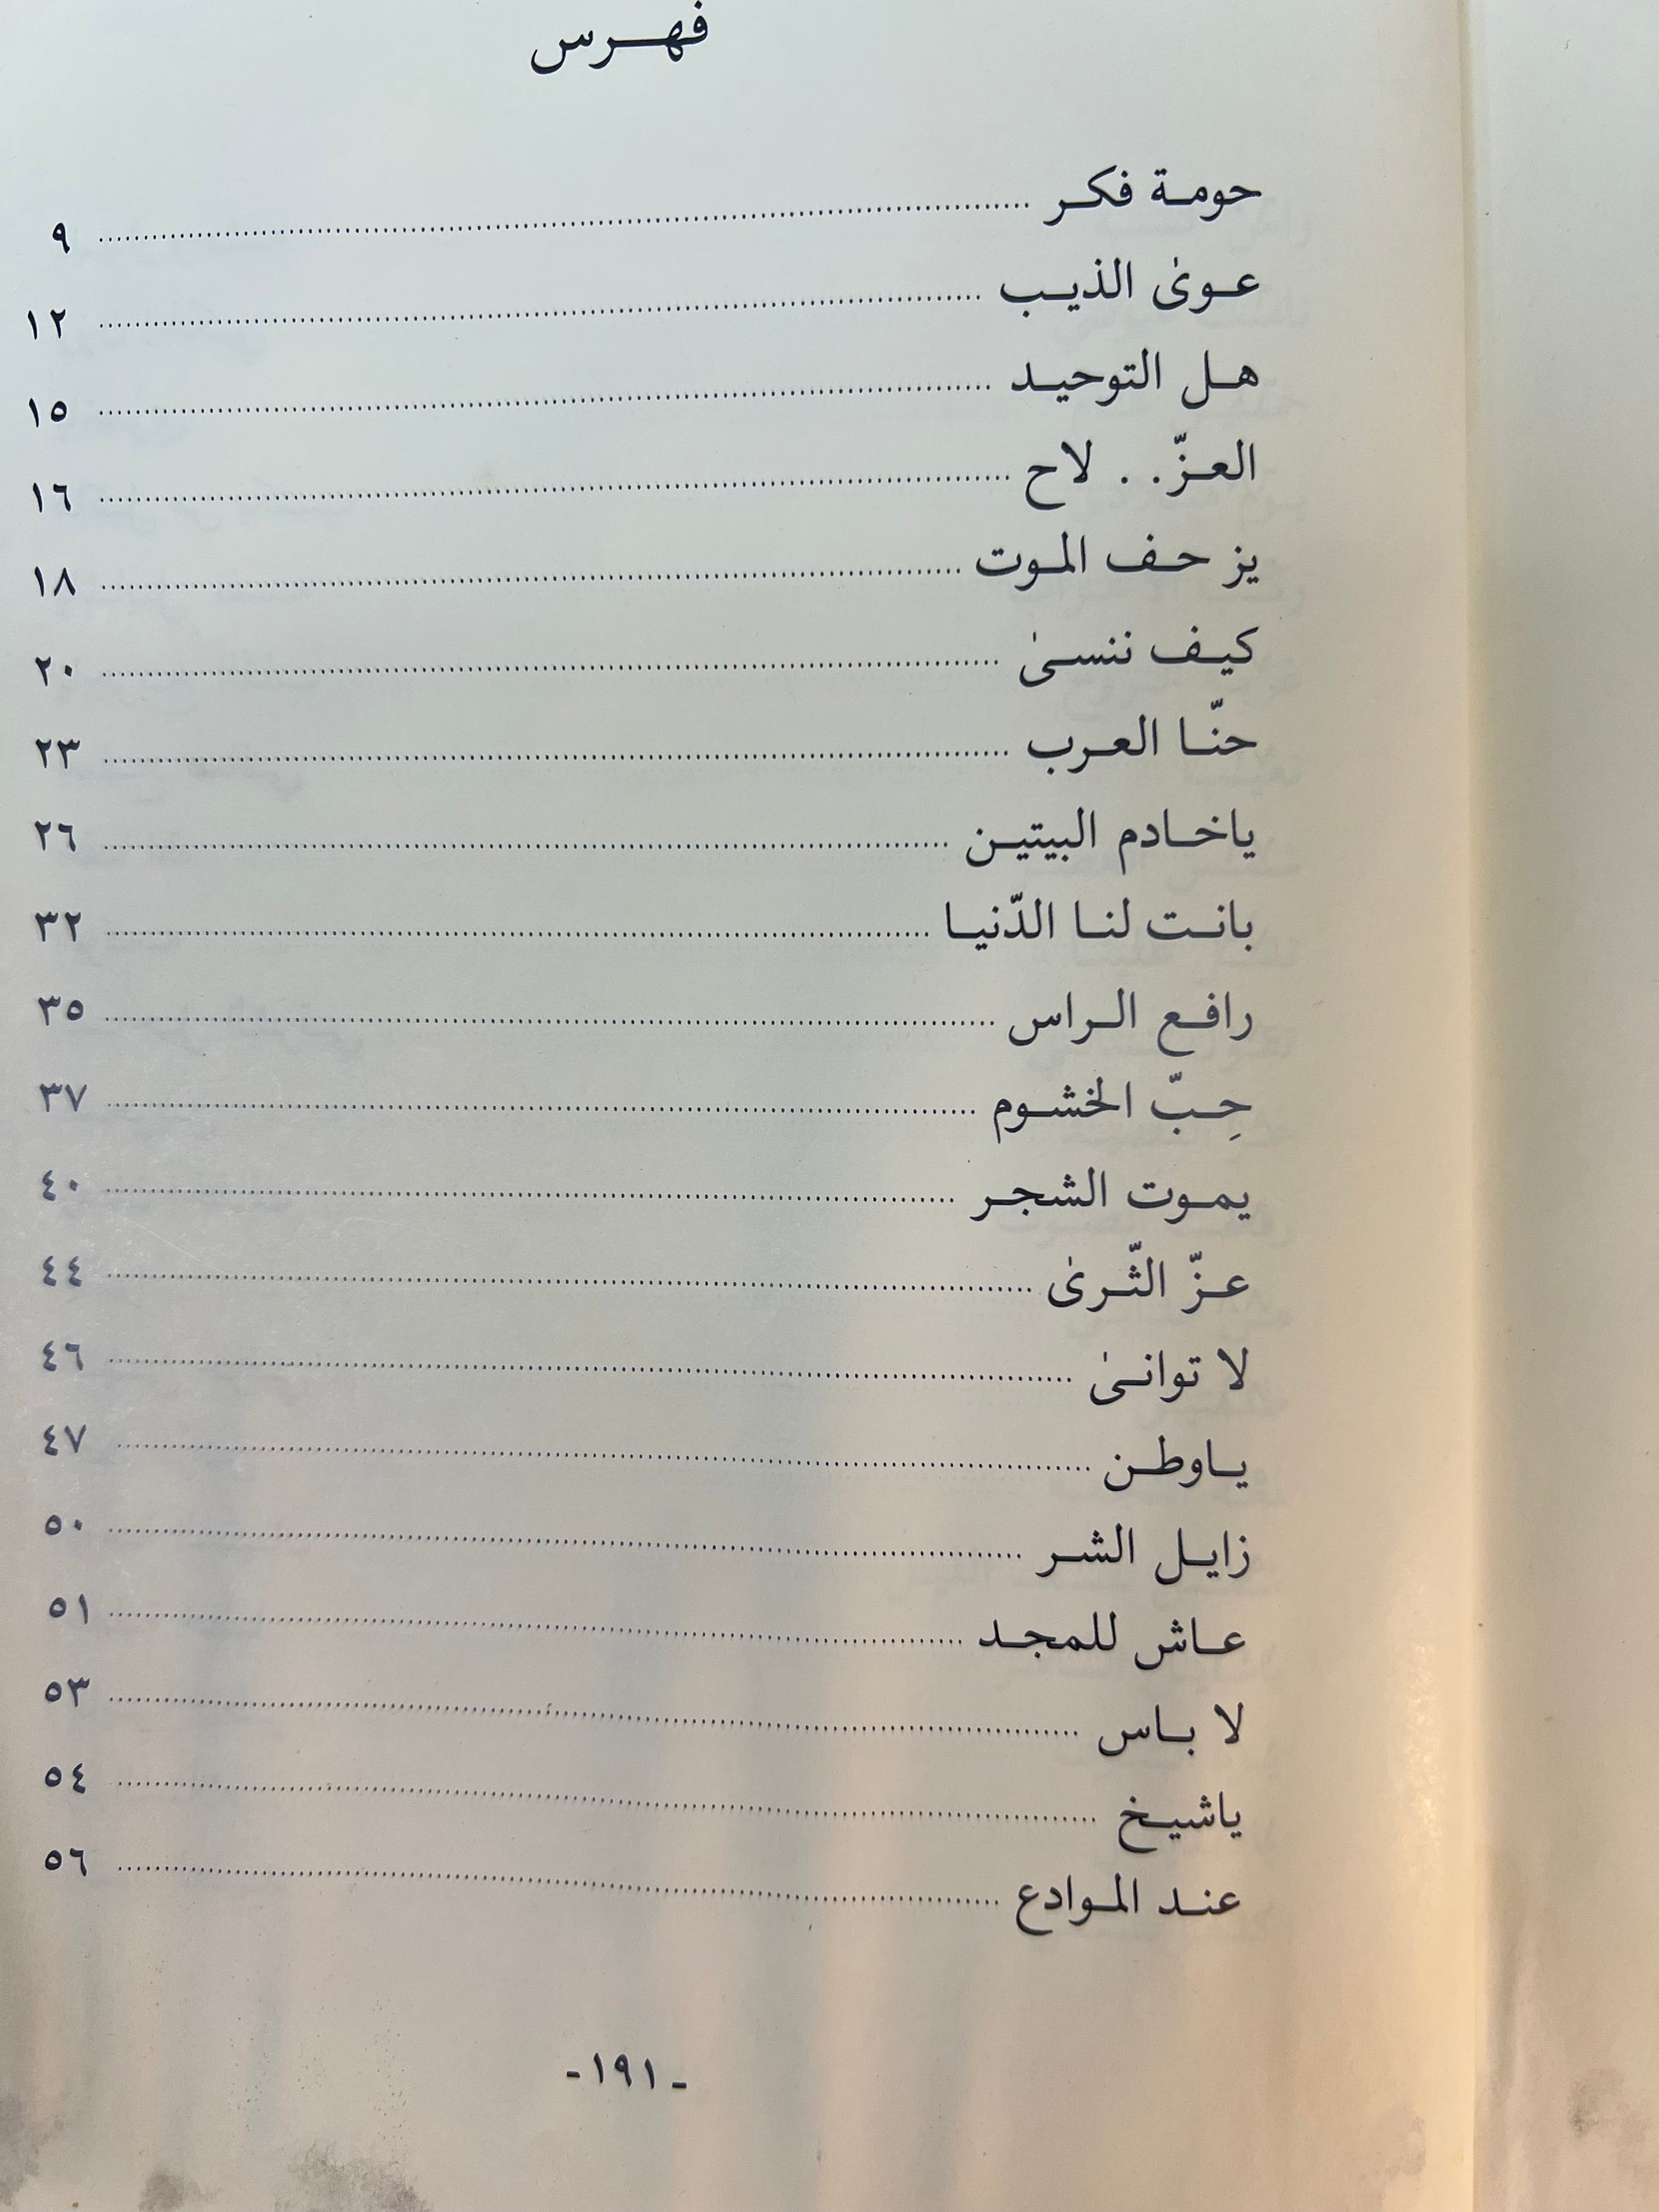 فهرس
حومة فكر ........ ٩
عوىٰ الذيب ........ ١٢
هل التوحيد ........ ١٥
العزّ. . لاح ........ ١٦
يز حف الموت ........ ١٨
كيف ننسىٰ ........ ٢٠
حنّا العرب ........ ٢٣
ياخادم البيتين ........ ٢٦
بانت لنا الدّنيا ........ ٣٢
رافع الراس ........ ٣٥
حِبّ الخشوم ........ ٣٧
يموت الشجر ........ ٤٠
عزّ الثّرىٰ ........ ٤٤
لا توانىٰ ........ ٤٦
ياوطن ........ ٤٧
زايل الشر ........ ٥٠
عاش للمجد ........ ٥١
لا باس ........ ٥٣
ياشيخ ........ ٥٤
عند الموادع ........ ٥٦
-١٩١-